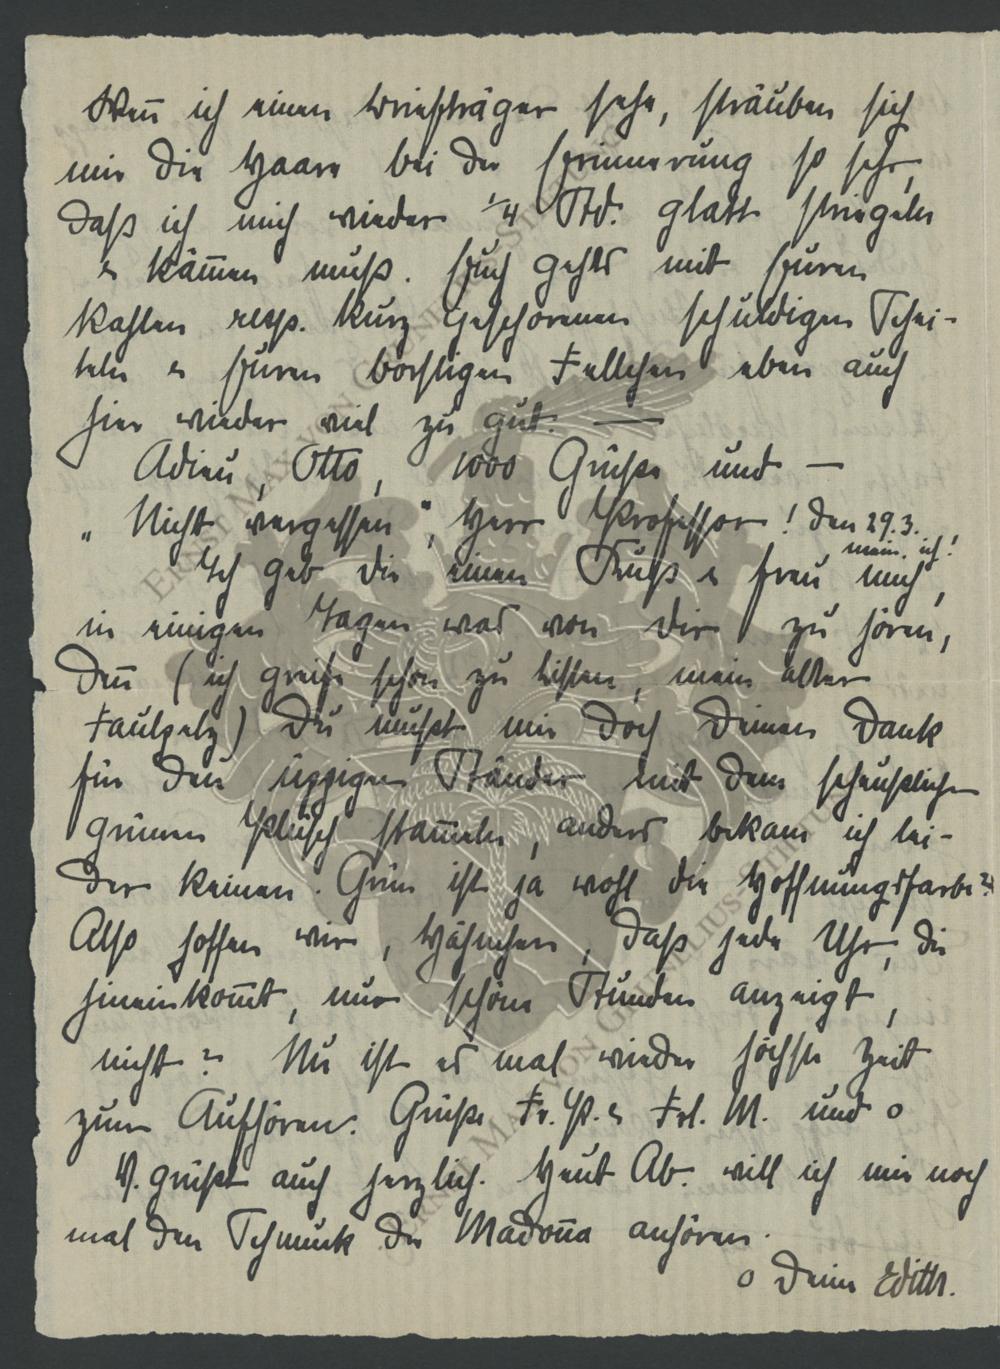 Weñ ich einen Briefträger sehe, sträuben sich
mir die Haare bei der Erinnerung so sehr,
daß ich mich wieder 1/4 Std. glatt striegeln
& käm̄en muß. Euch gehts mit Euren
kahlen resp. kurz geschorenen schuldigen Schei-
teln & Euren borstigen Fellchen eben auch
hier wieder viel zu gut. —
Adieu, Otto, 1000 Grüße und —
„Nicht vergessen", Herr Professor! den 29.3.
mein. ich!
Ich geb dir einen Kuß & freu mich,
in einigen Tagen was von dir zu hören,
deñ (ich greife schon zu Listen, mein alter
Faulpelz) Du mußt mir doch Deinen Dank
für den üppigen Ständer mit dem scheußlichen
grünen Plüsch stam̄eln, anders bekam ich lei-
der keinen. Grün ist ja wohl die Hoffnungsfarbe?
Also hoffen wir, Hähnchen, daß jede Uhr, die
hineinkom̄t, nur schöne Stunden anzeigt,
nicht? Nu ist es mal wieder höchste Zeit
zum Aufhören. Grüße Fr. P. & Frl. M. und o
V. grüßt auch herzlich. Heut Ab. will ich mir noch
mal den Schmuck der Madoña anhören.
o Deine Edith.
ERNST MAX VON GRUNELIUS-STIFTUNG
ERNST MAX VON GRUNELIUS-STIFTUNG